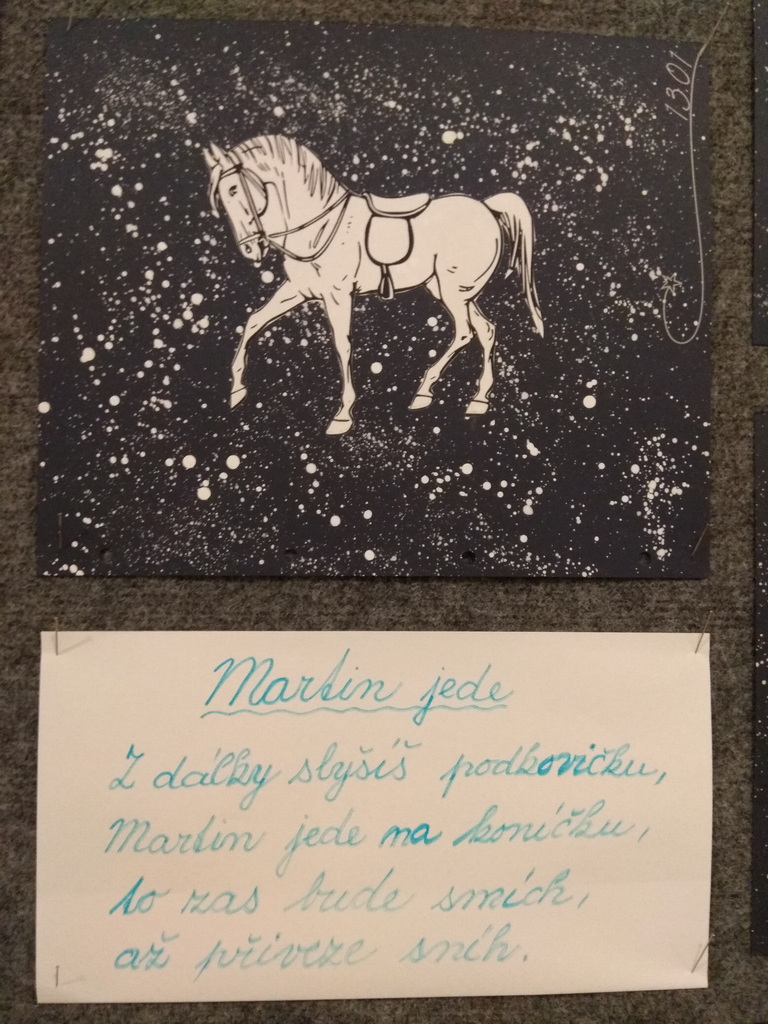 13.01
Martin jede
Z dálky slyšíš podkovičku,
Martin jede na koníčku,
to zas bude smích,
až přiveze sníh.